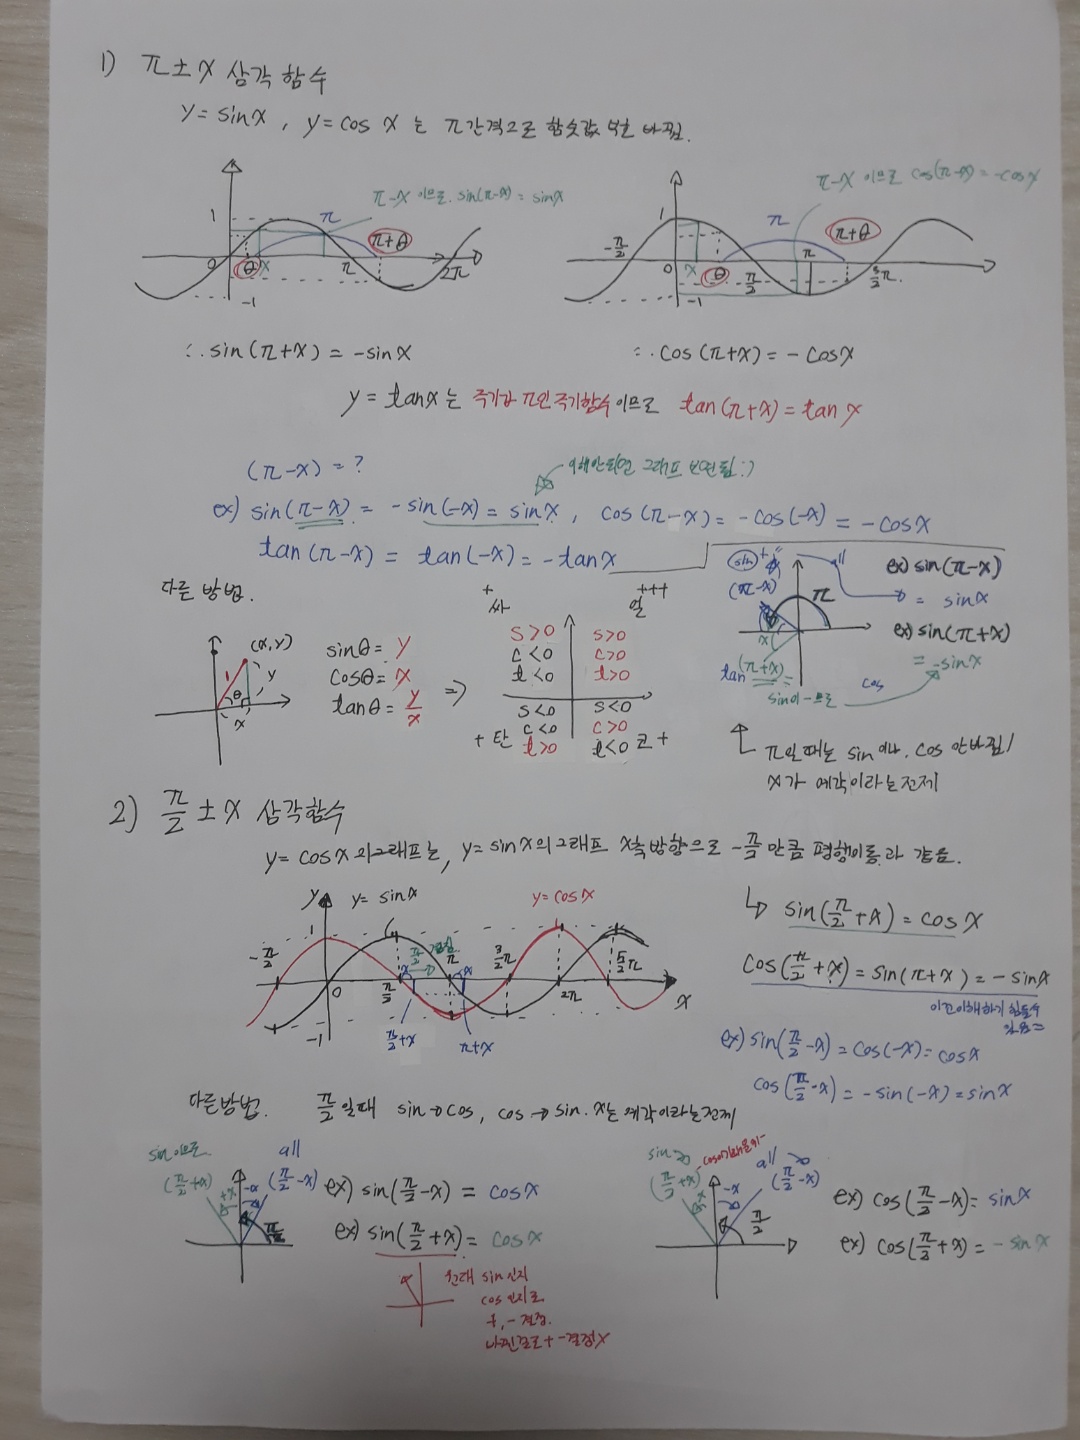 1) π±x 삼각함수
y=sinx, y=cosx는 π간격으로 함숫값 부호 바뀜.
π-x 이므로. sin(π-x)=sinx
1 π π+θ
0 θ x π 2π
-1
π-x 이므로 cos(π-x)=-cosx
1 π π+θ
-π/2 0 x θ π/2 π 3/2π.
-1
∴ sin(π+x)=-sinx
∴ cos(π+x)=-cosx
y=tanx는 주기가 π인 주기함수이므로 tan(π+x)=tanx
(π-x)=?
이해안되면 그래프 보면됨:)
ex) sin(π-x)= -sin(-x)=sinx, cos(π-x)=-cos(-x)=-cosx
tan(π-x)= tan(-x)=-tanx
다른 방법.
(x,y)
1 y
θ
x
sinθ=y
cosθ=x
tanθ=y/x
⇒
+ 싸
얼 +++
s>0 s>0
c<0 c>0
t<0 t>0
s<0 s<0
+ 탄 c<0 c>0
t>0 t<0 코 +
sin + all
(π-x) π
x
tan (π+x)=
sin이-므로
cos
ex) sin(π-x)
= sinx
ex) sin(π+x)
= -sinx
π일때는 sin이나, cos 안바뀜/
x가 예각이라는전제
2) π/2±x 삼각함수
y=cosx의그래프는, y=sinx의그래프 x축방향으로 -π/2만큼 평행이동과 같음.
y y=sinx y=cosx
1
-π/2 0 π/2 π 3/2π 2π 5/2π x
-1 π/2+x π+x
sin(π/2+x)=cosx
cos(π/2+x)=sin(π+x)=-sinx
이건이해하기 힘들수
있음
ex) sin(π/2-x)=cos(-x)=cosx
cos(π/2-x)=-sin(-x)=sinx
다른방법. π/2일때 sin→cos, cos→sin. x는예각이라는전제
sin이므로 all
(π/2+x) +x -x (π/2-x)
π/2
ex) sin(π/2-x)= cosx
ex) sin(π/2+x)= cosx
원래 sin인지
cos인지로
+,- 결정.
바뀐걸로+-결정x
sin all
(π/2+x) -x (π/2-x)
x π/2
ex) cos(π/2-x)=sinx
ex) cos(π/2+x)=-sinx